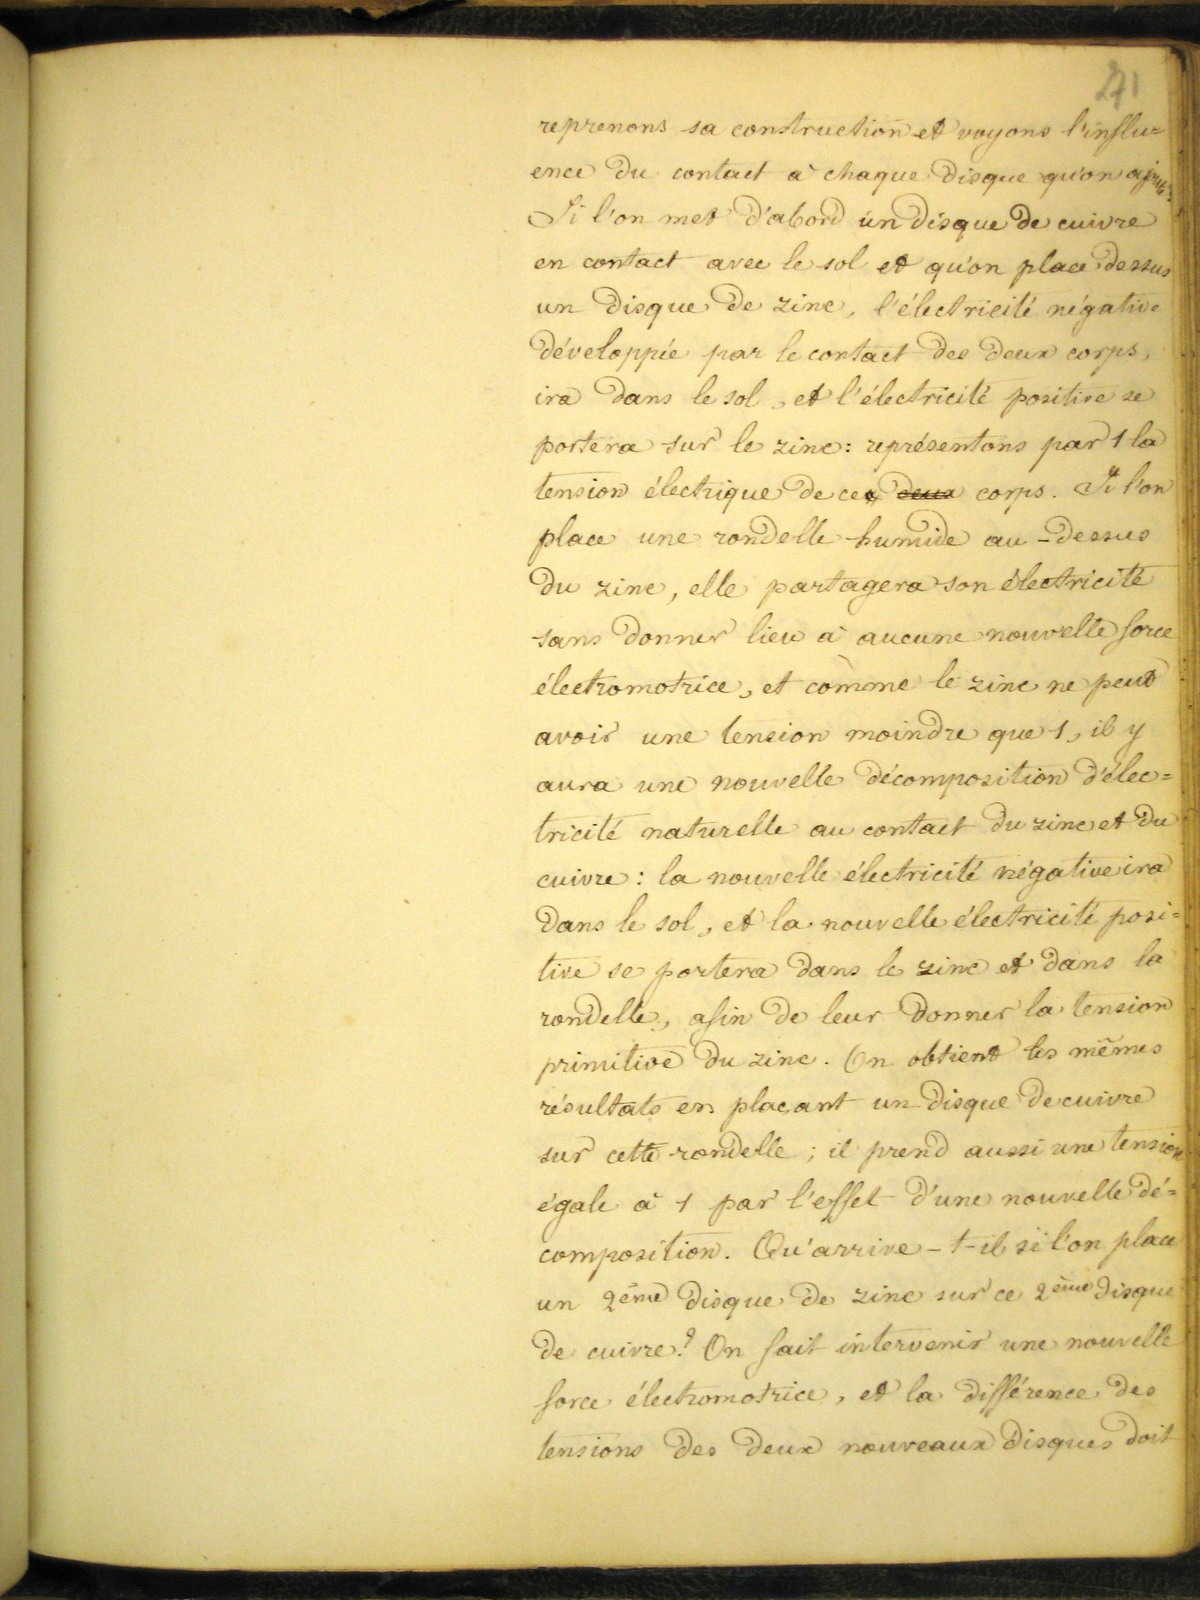 41
reprenons sa construction et voyons l'influ=
ence du contact à chaque disque qu'on ajoute.
Si l'on met d'abord un disque de cuivre
en contact avec le sol et qu'on place dessus
un disque de zinc, l'électricité négative
développée par le contact des deux corps,
ira dans le sol, et l'électricité positive se
portera sur le zinc: représentons par 1 la
tension électrique de ce deux corps. Si l'on
place une rondelle humide au-dessus
du zinc, elle partagera son électricité
sans donner lieu à aucune nouvelle force
électromotrice, et comme le zinc ne peut
avoir une tension moindre que 1, il y
aura une nouvelle décomposition d'élec=
tricité naturelle au contact du zinc et du
cuivre: la nouvelle électricité négative ira
dans le sol, et la nouvelle électricité posi=
tive se portera dans le zinc et dans la
rondelle, afin de leur donner la tension
primitive du zinc. On obtient les mêmes
résultats en plaçant un disque de cuivre
sur cette rondelle; il prend aussi une tension
égale à 1 par l'effet d'une nouvelle dé=
composition. Qu'arrive-t-il si l'on place
un 2ème disque de zinc sur ce 2ème disque
de cuivre? On fait intervenir une nouvelle
force électromotrice, et la différence des
tensions des deux nouveaux disques doit